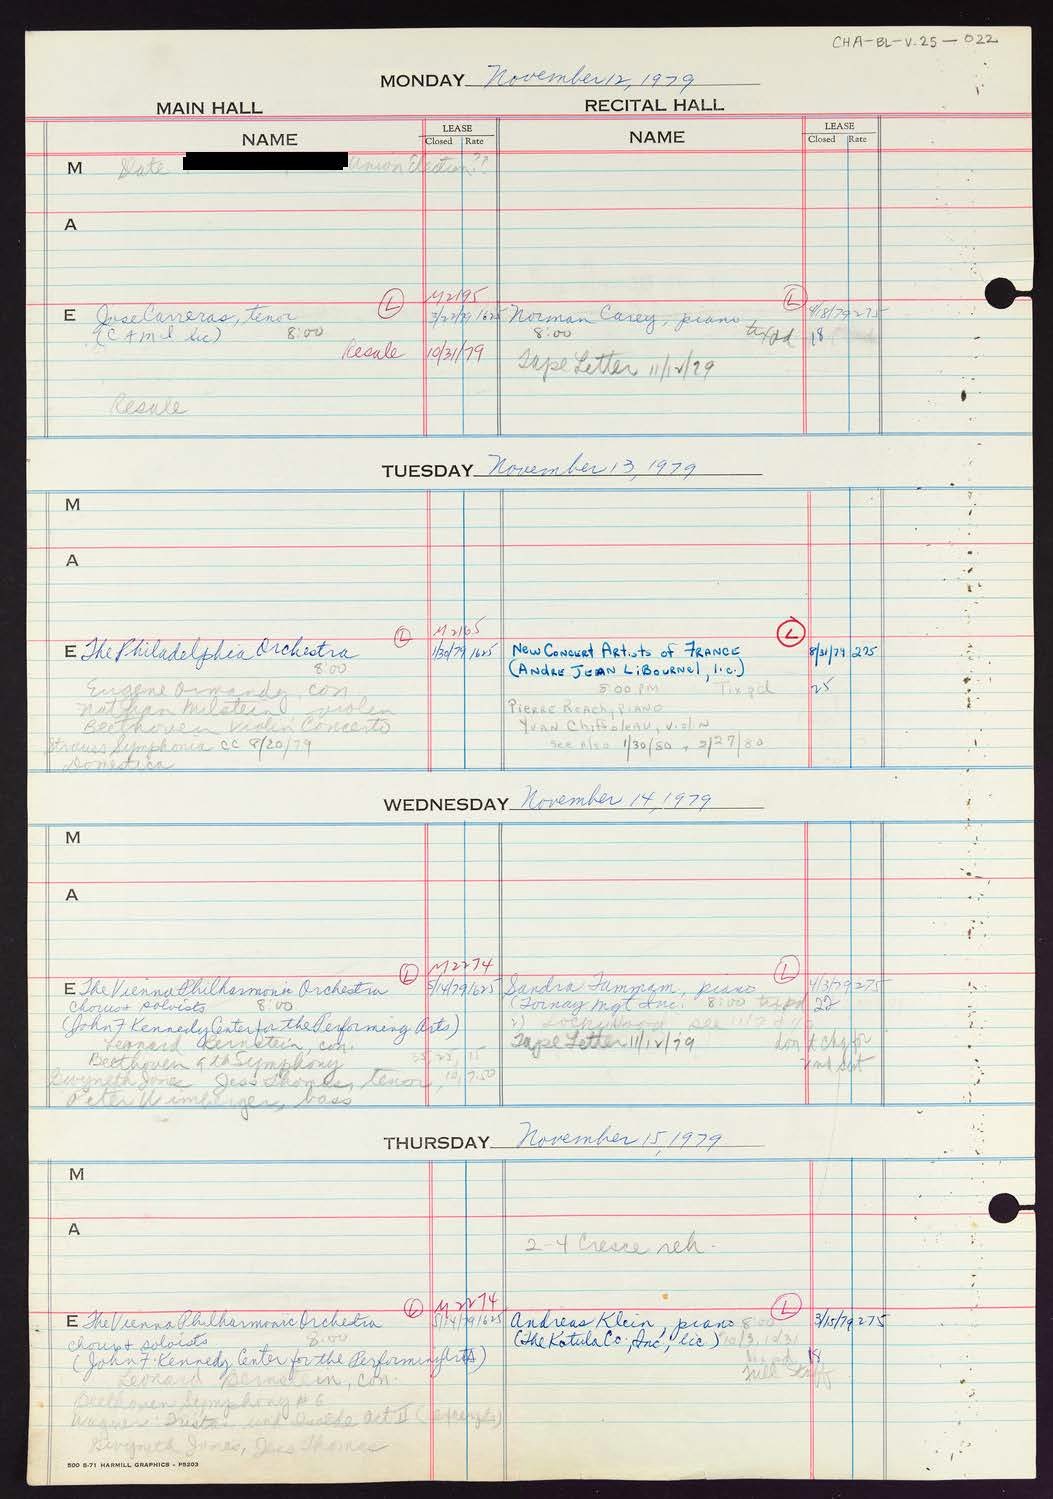 CHA-BL-V.25-022
MONDAY November 12, 1979
MAIN HALL RECITAL HALL
NAME LEASE NAME LEASE
Closed Rate Closed Rate
M Date Union Election??
A
L M2195 L
E Jose Carreras, tenor 3/22/79 1625 Norman Carey, piano 4/18/79 275
(CAMI lic) 8:00 8:00 tix pd 18
Resale 10/31/79 Tape Letter 11/12/79
Resale
TUESDAY November 13, 1979
M
A
L M2165 L
E The Philadelphia Orchestra 1/30/79 1625 New Concert Artists of FRANCE 8/31/79 275
8:00 (ANDRE JEAN LiBOURNEL, lic.)
Eugene Ormandy, con 8:00 PM Tix pd 25
Nathan Milstein violin PiERRE REACH, PiANO
Beethoven Violin Concerto YVAN Chiffoleau, violiN
Strauss Symphonia CC 8/20/79 see also 1/30/80 + 2/27/80
Domestica
WEDNESDAY November 14, 1979
M
A
L M2274 L
E The Vienna Philharmonic Orchestra 5/14/79 1625 Sandra piano 4/3/79 275
chorus + soloists 8:00 (Tornay Mgt Inc. 8:00 tix pd 22
(John F Kennedy Center for the Performing Arts) see
Leonard Bernstein, con. Tape Letter 11/12/79 don't chg for
Beethoven 9th Symphony 15 2nd set
Gwyneth Jones Jess Thomas, tenor, 10, 7.50
Peter Wimberger, bass
THURSDAY November 15, 1979
M
A
2-4 Cresce reh.
L M2274 L
E The Vienna Philharmonic Orchestra 5/14/79 1625 Andreas Klein, piano 8:00 3/15/79 275
chorus + soloists 8:00 (The Katula Co., Inc, lic) 10/3, 10/31
(John F. Kennedy Center for the Performing Arts) tix pd 18
Leonard Bernstein, con. full staff
Beethoven Symphony #6
Wagner: Tristan und Isolde Act II (excerpts)
Gwyneth Jones, Jess Thomas
500 5-71 HARMILL GRAPHICS - P5203